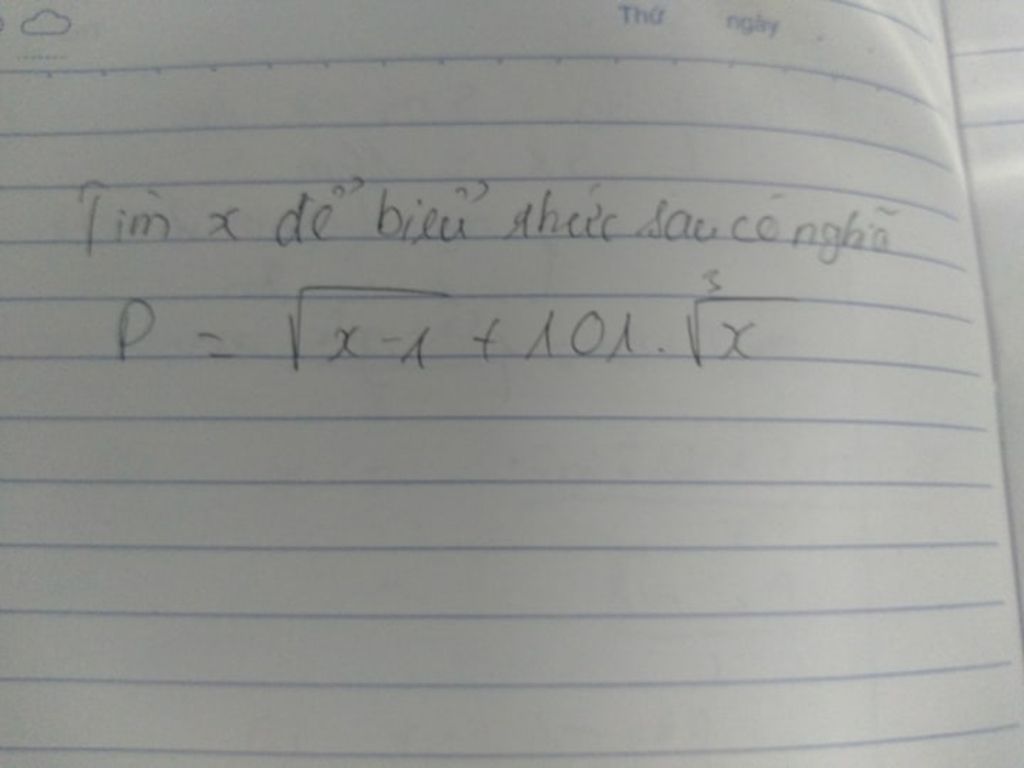 Thứ ngày
Tìm x để biểu thức sau có nghĩ
P = √x-1 + 101. ∛x